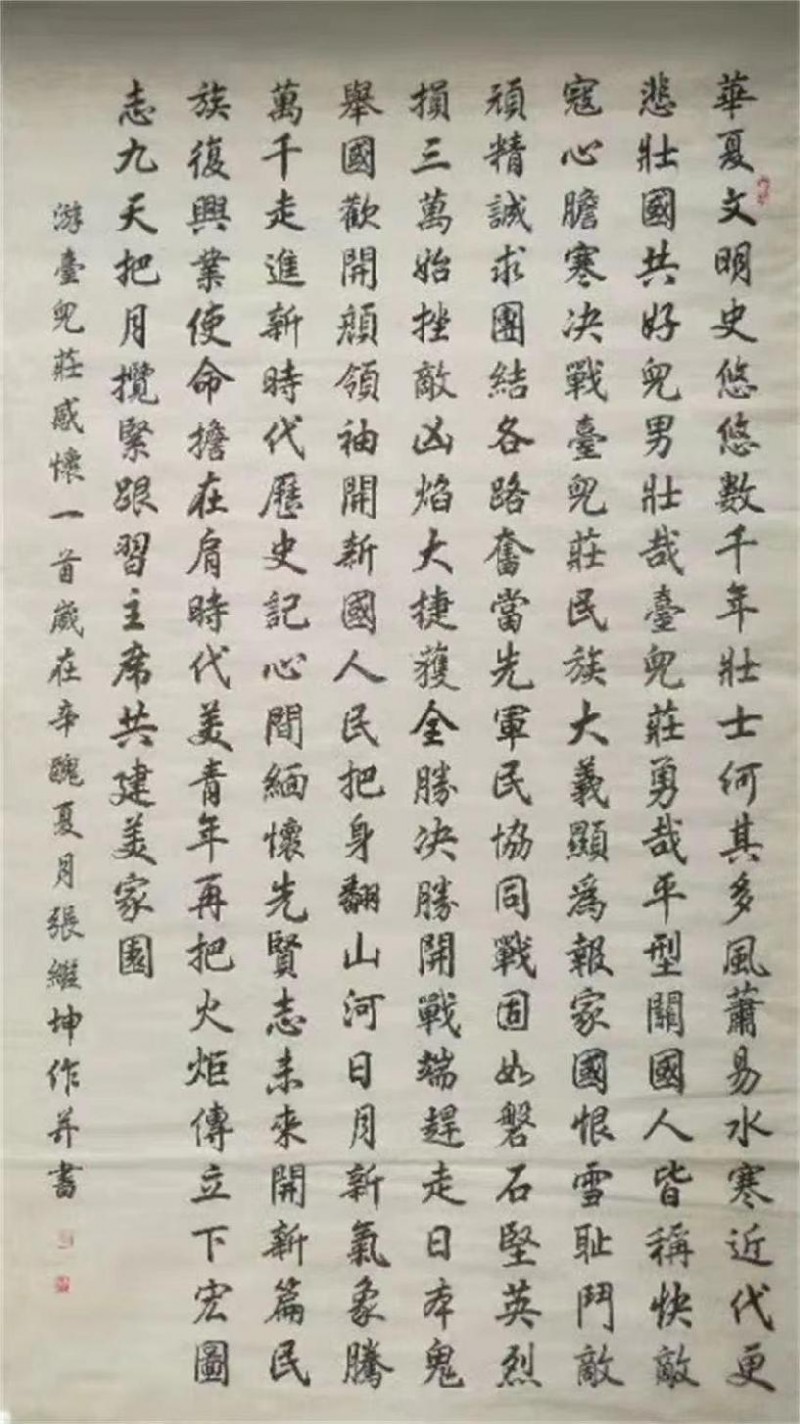 華夏文明史悠悠數千年壯士何其多風蕭易水寒近代更
悲壯國共好兒男壯哉臺兒莊勇哉平型關國人皆稱快敵
寇心膽寒决戰臺兒莊民族大義顯爲報家國恨雪耻鬥敵
頑精誠求團結各路奮當先軍民協同戰固如磐石堅英烈
損三萬始挫敵凶焰大捷獲全勝决勝開戰端趕走日本鬼
舉國歡開顔領袖開新國人民把身翻山河日月新氣象騰
萬千走進新時代歷史記心間緬懷先賢志未來開新篇民
族復興業使命擔在肩時代美青年再把火炬傳立下宏圖
志九天把月攬緊跟習主席共建美家園
游臺兒莊感懷一首歲在辛醜夏月張繼坤作并書